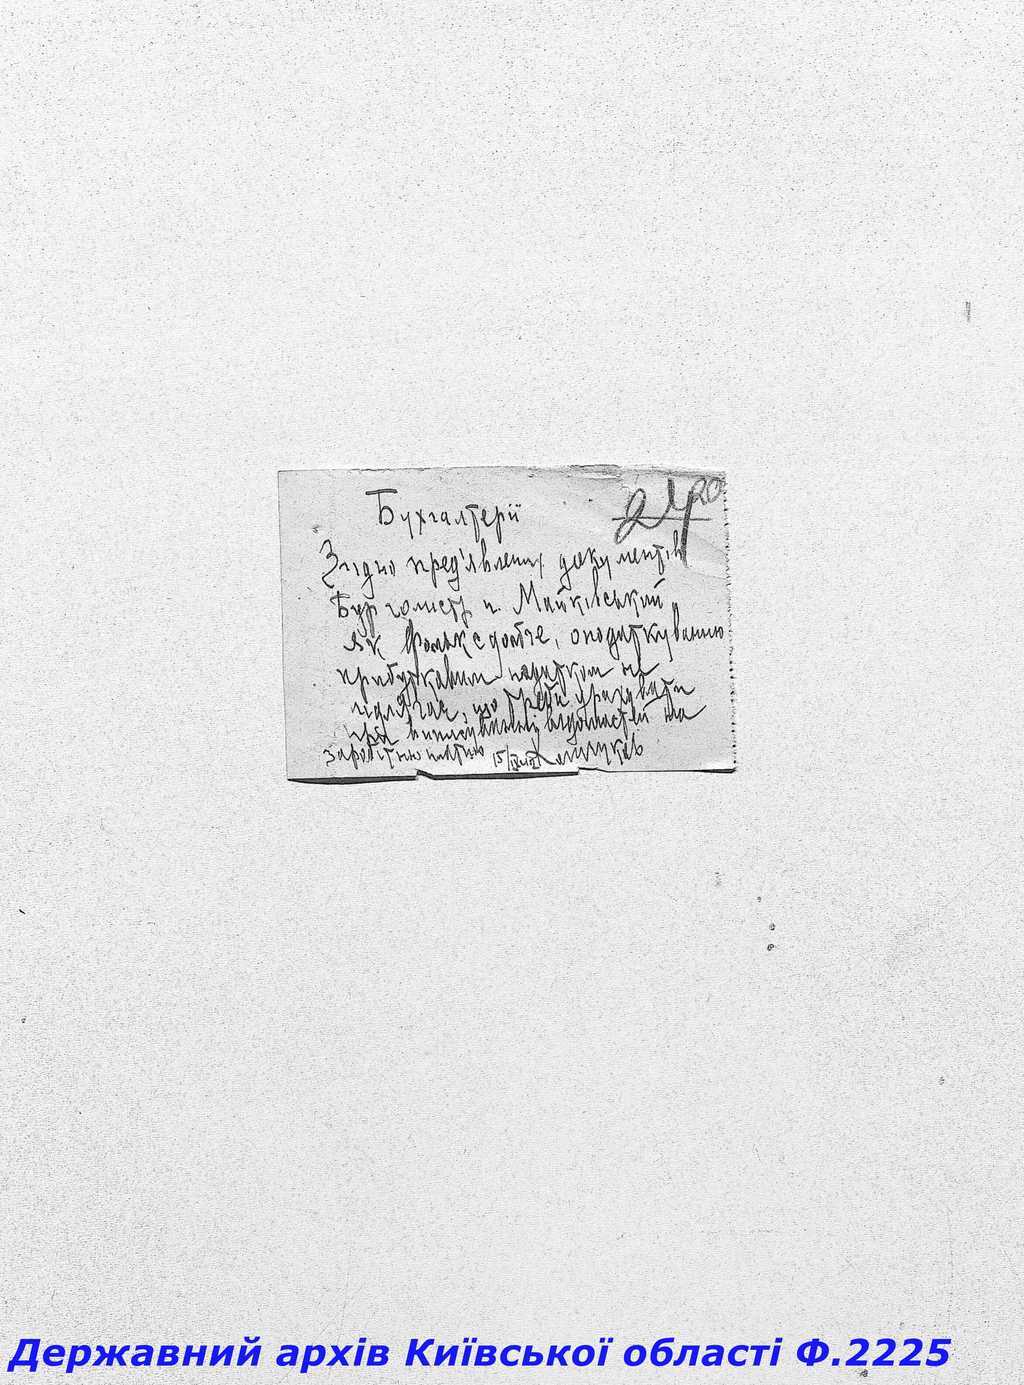 Бухгалтерії
Згідно пред'явлених документів
Бургомістр п. Майківський,
як фольксдойче, оподаткуванню
прибутковим податком не
підлягає, що треба урахувати
при виписуванні відомостей на
заробітню платню 15/IV
Державний архів Київської області Ф.2225